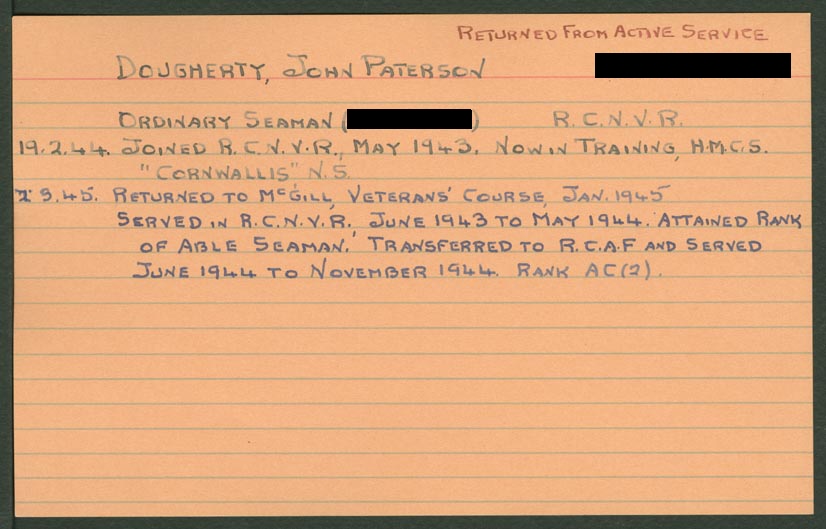 RETURNED FROM ACTIVE SERVICE
DOUGHERTY, JOHN PATERSON
ORDINARY SEAMAN ( ) R.C.N.V.R.
19.2.44. JOINED R.C.N.V.R., MAY 1943. NOW IN TRAINING, H.M.C.S.
"CORNWALLIS" N.S.
3.45. RETURNED TO McGILL, VETERANS' COURSE, JAN. 1945
SERVED IN R.C.N.V.R., JUNE 1943 TO MAY 1944. ATTAINED RANK
OF ABLE SEAMAN. TRANSFERRED TO R.C.A.F AND SERVED
JUNE 1944 TO NOVEMBER 1944. RANK AC(2).